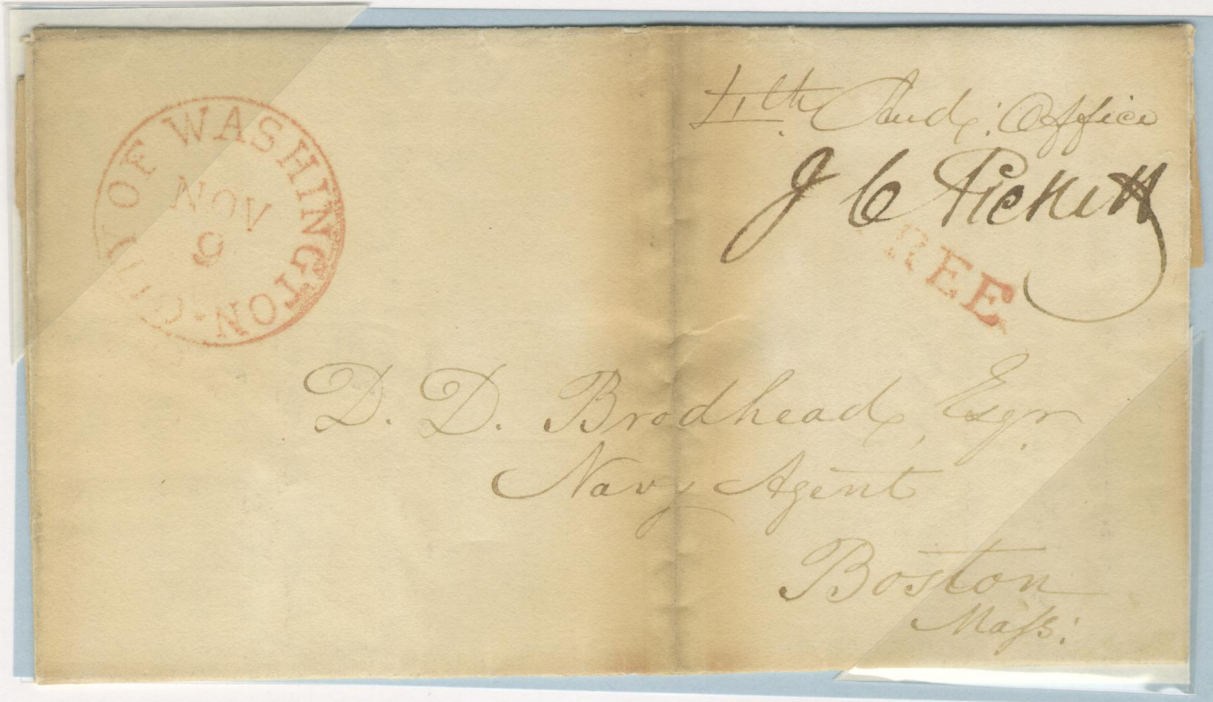 CITY OF WASHINGTON
NOV
9
4th Aud: Office
J C Pickett
FREE
D. D. Brodhead, Esqr
Navy Agent
Boston
Mass: